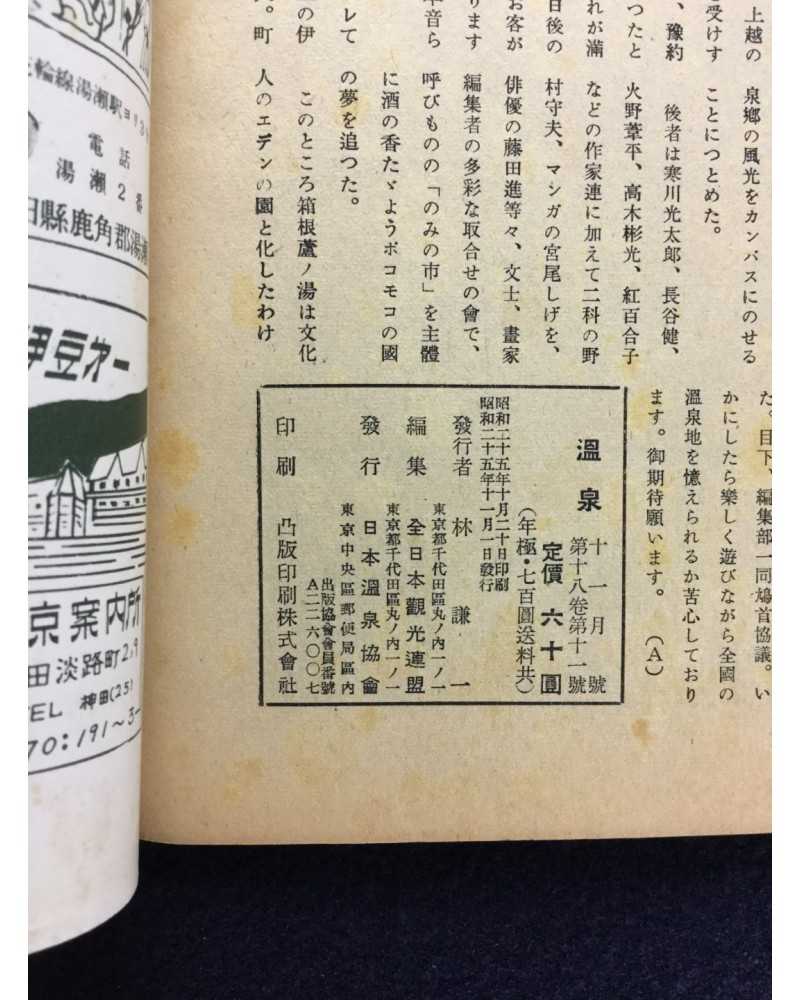 上越の
を受けす
、豫約
つたと
れが滿
日後の
お客が
ります
草音ら
レて
の伊
。町
泉鄉の風光をカンバスにのせる
ことにつとめた。
後者は寒川光太郎、長谷健、
火野葦平、高木彬光、紅百合子
などの作家連に加えて二科の野
村守夫、マンガの宮尾しげを、
俳優の藤田進等々、文士、畫家
編集者の多彩な取合せの會で、
呼びものの「のみの市」を主體
に酒の香たゞようポコモコの國
の夢を追つた。
このところ箱根蘆ノ湯は文化
人のエデンの園と化したわけ
た。目下、編集部一同鳩首協議。い
かにしたら樂しく遊びながら全國の
溫泉地を憶えられるか苦心しており
ます。御期待願います。　（A）
溫泉
十一月號
第十八卷第十一號
定價　六十圓
（年極・七百圓送料共）
昭和二十五年十月二十日印刷
昭和二十五年十一月一日發行
發行者　林　謙一
東京都千代田區丸ノ內一ノ一
編集　全日本觀光連盟
東京都千代田區丸ノ內一ノ一
發行　日本溫泉協會
東京中央區郵便局區內
出版協會會員番號
A二二六〇〇七
印刷　凸版印刷株式會社
輪線湯瀬駅ヨリ3
電話
湯瀬2番
田縣鹿角郡湯瀬
伊豆才一
京案内所
田淡路町2ノ9
TEL 神田(25)
70:191〜3